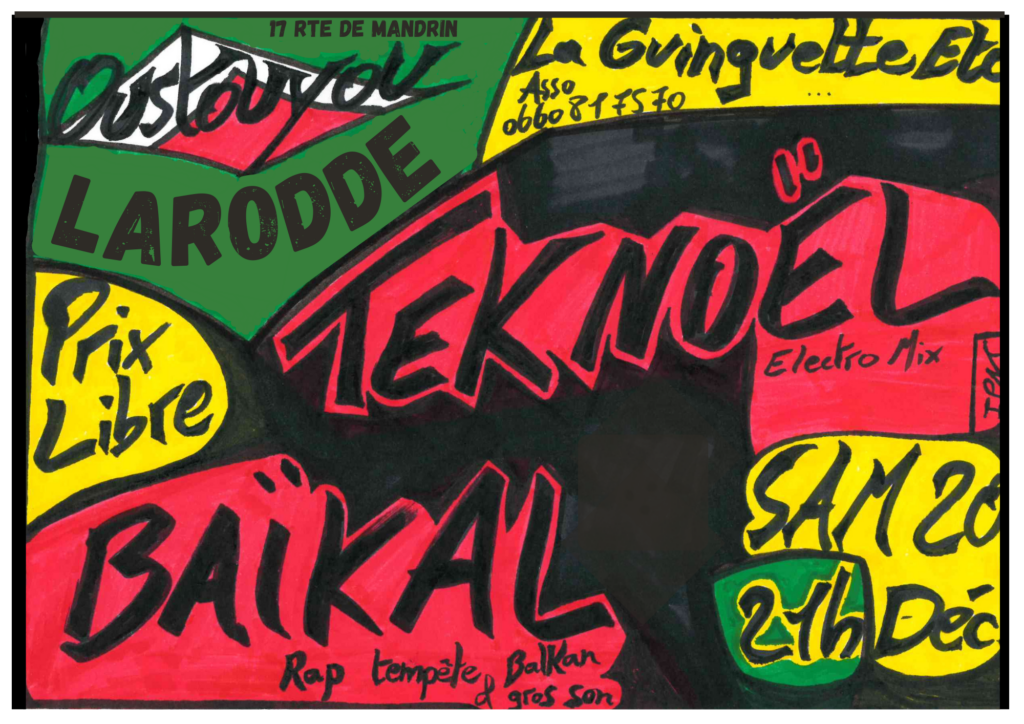 17 RTE DE MANDRIN
Oustouyou
LARODDE
La Guinguette Etc
...
Asso
0660817570
TEKNOËL
Electro Mix
Prix
Libre
BAÏKA'L
Rap tempête, Balkan
& gros son
SAM 28
21h Déc